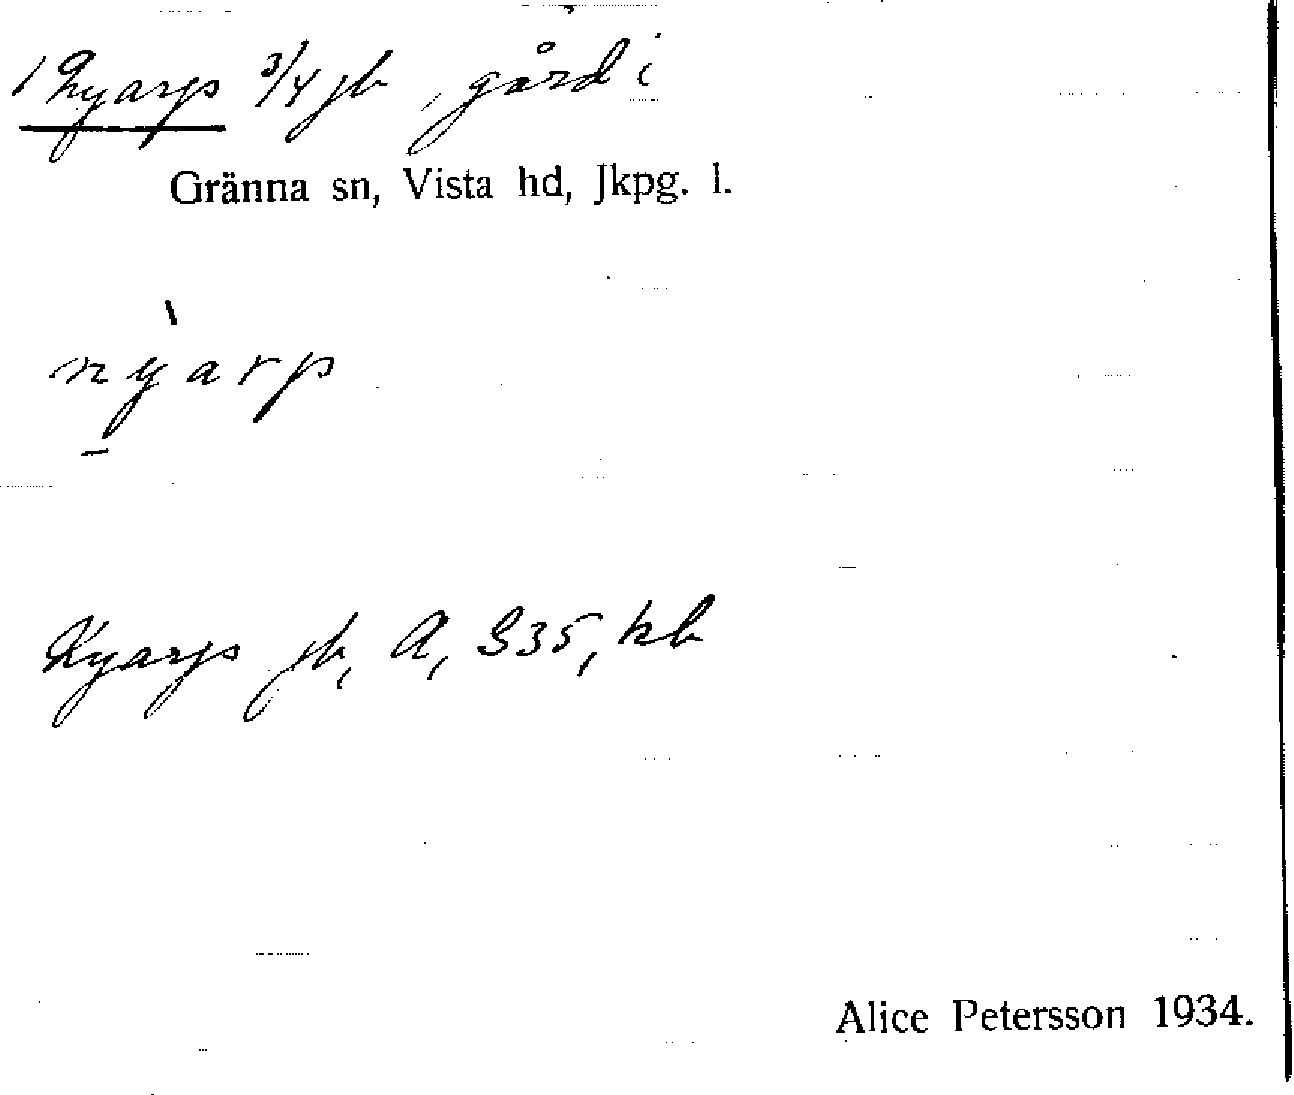 1 Nyarp 3/4 jb, gård i
Gränna sn, Vista hd, Jkpg. l.
nỳarp
Nyarp jb, A, S35, kb
Alice Petersson 1934.